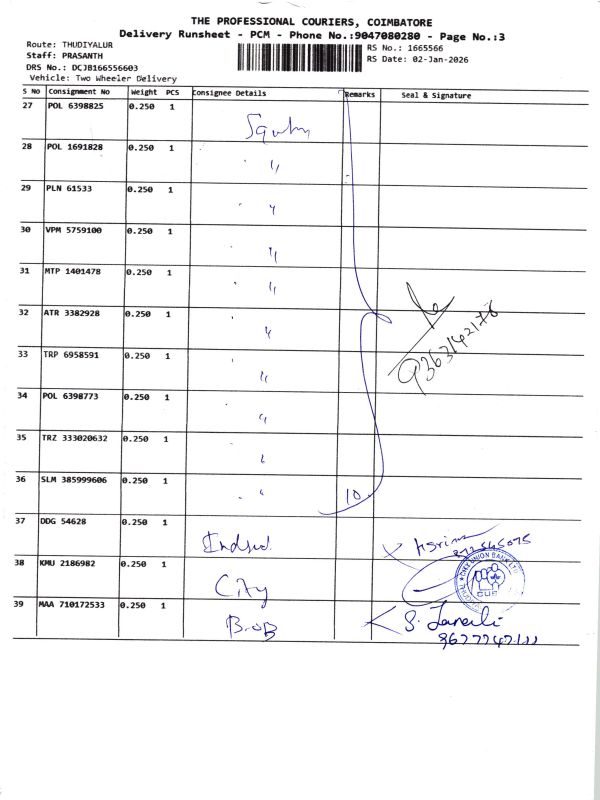 THE PROFESSIONAL COURIERS, COIMBATORE
Delivery Runsheet - PCM - Phone No.:9047080280 - Page No.:3
Route: THUDIYALUR
RS No.: 1665566
Staff: PRASANTH
RS Date: 02-Jan-2026
DRS No.: DCJB166556603
Vehicle: Two Wheeler Delivery
S No Consignment No Weight PCS Consignee Details Remarks Seal & Signature
27 POL 6398825 0.250 1
28 POL 1691828 0.250 1 "
29 PLN 61533 0.250 1 "
30 VPM 5759100 0.250 1 "
31 MTP 1401478 0.250 1 "
32 ATR 3382928 0.250 1 "
9363142178
33 TRP 6958591 0.250 1 "
34 POL 6398773 0.250 1 "
35 TRZ 333020632 0.250 1 "
36 SLM 385999606 0.250 1 " 10
37 DDG 54628 0.250 1
38 KMU 2186982 0.250 1 City
CITY UNION BANK LTD
CUB
39 MAA 710172533 0.250 1 BOB